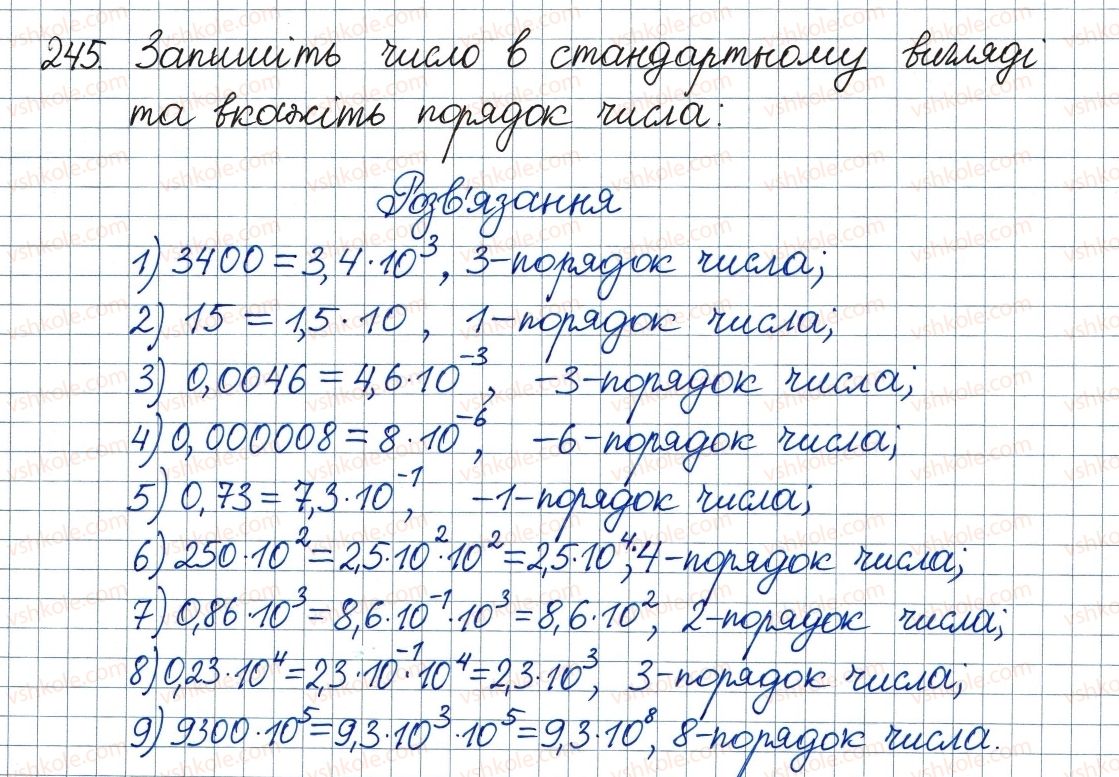 245. Запишіть число в стандартному вигляді
та вкажіть порядок числа:
Розв'язання
1) 3400 = 3,4·10³, 3-порядок числа;
2) 15 = 1,5·10, 1-порядок числа;
3) 0,0046 = 4,6·10⁻³, -3-порядок числа;
4) 0,000008 = 8·10⁻⁶, -6-порядок числа;
5) 0,73 = 7,3·10⁻¹, -1-порядок числа;
6) 250·10² = 2,5·10²·10² = 2,5·10⁴; 4-порядок числа;
7) 0,86·10³ = 8,6·10⁻¹·10³ = 8,6·10², 2-порядок числа;
8) 0,23·10⁴ = 2,3·10⁻¹·10⁴ = 2,3·10³, 3-порядок числа;
9) 9300·10⁵ = 9,3·10³·10⁵ = 9,3·10⁸, 8-порядок числа.